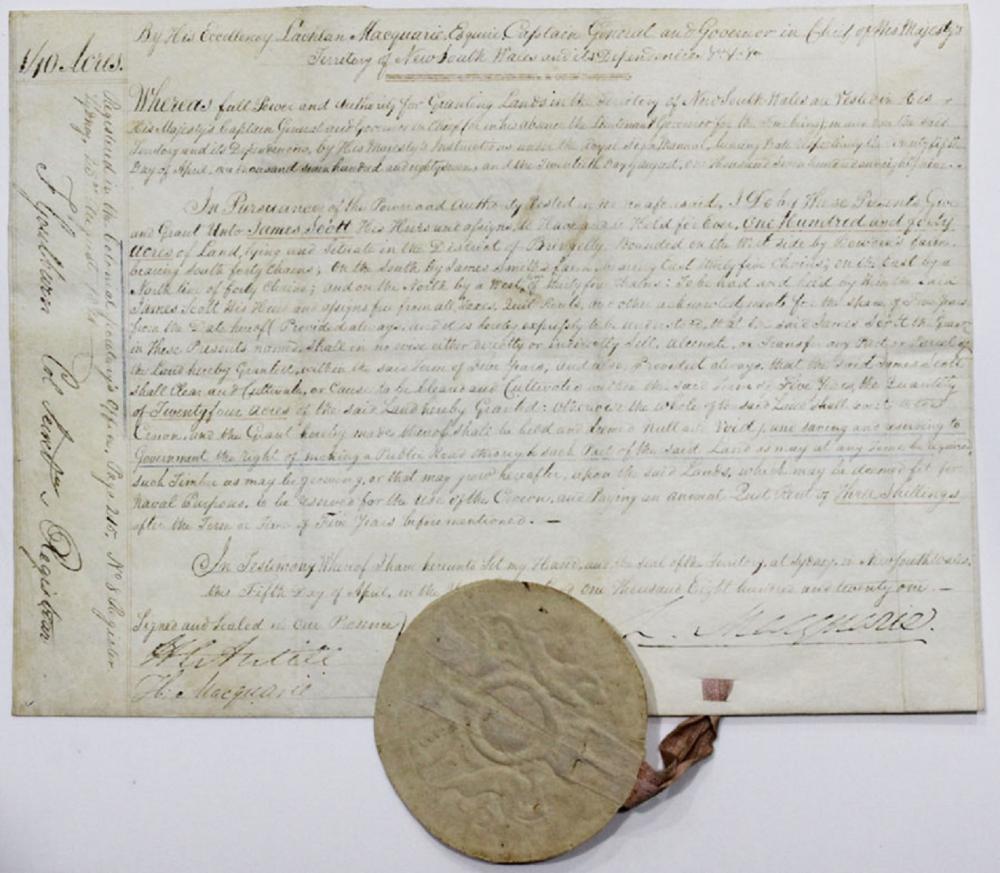 140 Acres.
By His Excellency Lachlan Macquarie, Esquire Captain General and Governor in Chief of His Majesty's
Territory of New South Wales and its Dependencies &c. &c. &c.
Whereas full Power and Authority for Granting Lands in the Territory of New South Wales are Vested in His
His Majesty's Captain General and Governor in Chief (or in his absence the Lieutenant Governor for the time being) in and over the said
Territory and its Dependencies, by His Majesty's Instructions under the Royal Sign Manual, bearing Date respectively the Twenty fifth
Day of April, one thousand seven hundred and eighty seven, and the Twentieth Day of August, one thousand seven hundred and
In Pursuance of the Power and Authority Vested in me as aforesaid, I Do by these Presents Give
and Grant Unto James Scott His Heirs and assigns, to Have and to Hold for Ever, One Hundred and forty
Acres of Land, lying and Situate in the District of Bringelly. Bounded on the West side by Bowden's farm
bearing South forty Chains; On the South by James Smith's farm bearing East thirty five Chains; on the East by a
North line of forty Chains; and on the North by a West line of thirty five Chains: To be had and held by Him the said
James Scott His Heirs and assigns free from all Taxes, Quit Rents, and other acknowledgments for the space of Five Years
from the Date hereof: Provided always, and it is hereby expressly to be understood, that the said James Scott the Grantee
in these Presents named, shall in no wise either directly or indirectly Sell, Alienate, or Transfer any Part or Parcel of
the Land hereby Granted, within the said Term of Five Years, and also, Provided always, that the said James Scott
shall Clear and Cultivate, or Cause to be Cleared and Cultivated within the said Term of Five Years, the Quantity
of Twenty four Acres of the said Land hereby Granted: Otherwise the whole of the said Land shall revert to the
Crown, and the Grant hereby made thereof shall be held and deemed Null and Void; and saving and reserving to
Government the Right of making a Public Road through such Part of the said Land as may at any time be required,
such Timber as may be growing, or that may grow hereafter, upon the said Lands, which may be deemed fit for
Naval Purposes, to be reserved for the use of the Crown, and Paying an annual Quit Rent of Three Shillings
after the Term or Time of Five Years before mentioned. —
In Testimony Whereof I have hereunto Set my Hand, and the Seal of the Territory, at Sydney, in New South Wales,
this Fifth Day of April, in the of one Thousand Eight hundred and twenty one. —
Signed and Sealed in Our Presence
L. Macquarie.
H. C. Antill
H. Macquarie
Registered in the Colonial Secretary's Office, Page 215, No. 8 Register
Sydney, August
F. Goulburn Col. Secretary & Registrar